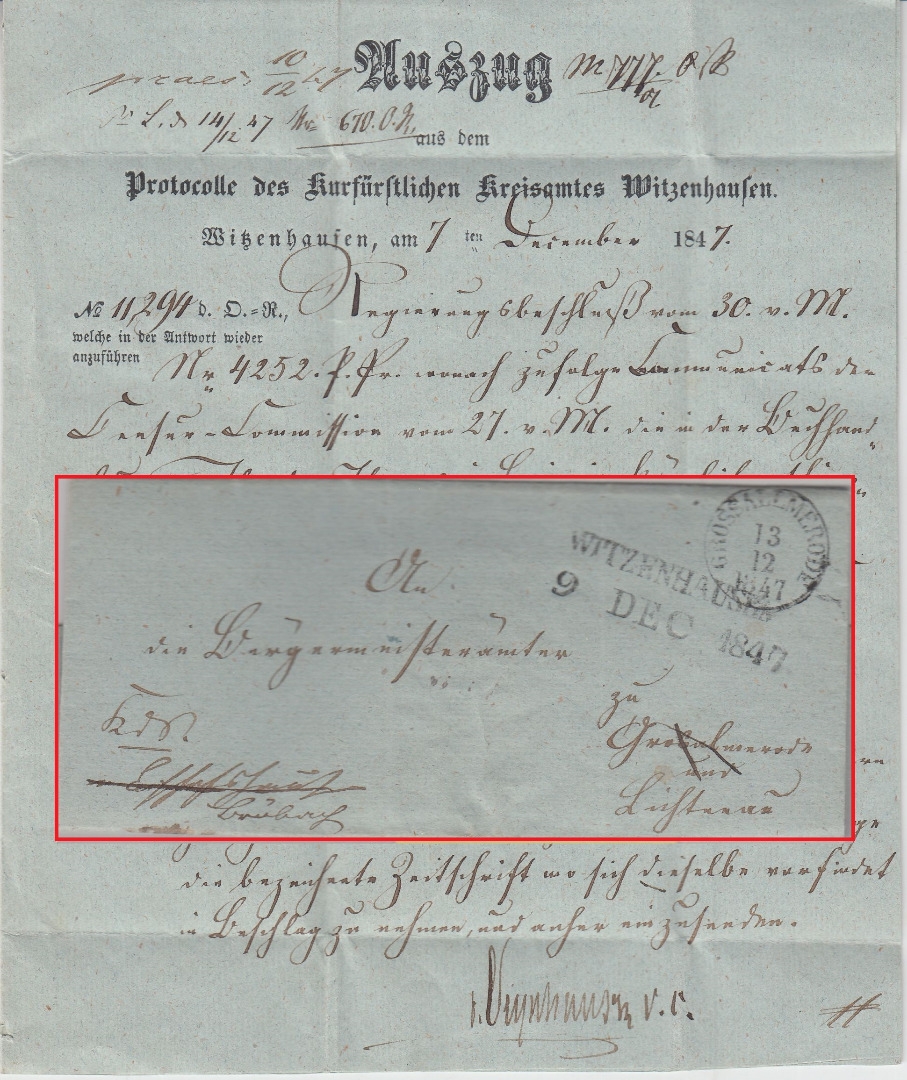 praes. 10/12 47
Auszug
14/12 47 Nr 670. O.R.
aus dem
Protocolle des Kurfürstlichen Kreisamtes Witzenhausen.
Witzenhausen, am 7 ten December 1847.
No 11,294 d. O.=R.,
welche in der Antwort wieder
anzuführen
Regierungsbeschluß vom 30. v. M.
Nr 4252. P. Pr. wonach zufolge Communicats der
Censur-Commission vom 27. v. M. die in der Buchhand
GROSSALMERODE
13
12
1847
WITZENHAUSEN
9 DEC 1847
An
die Bürgermeisterämter
zu
KdS.
Großalmerode
und
Lichtenau
die bezeichnete Zeitschrift wo sich dieselbe vorfindet
in Beschlag zu nehmen, und anher einzusenden.